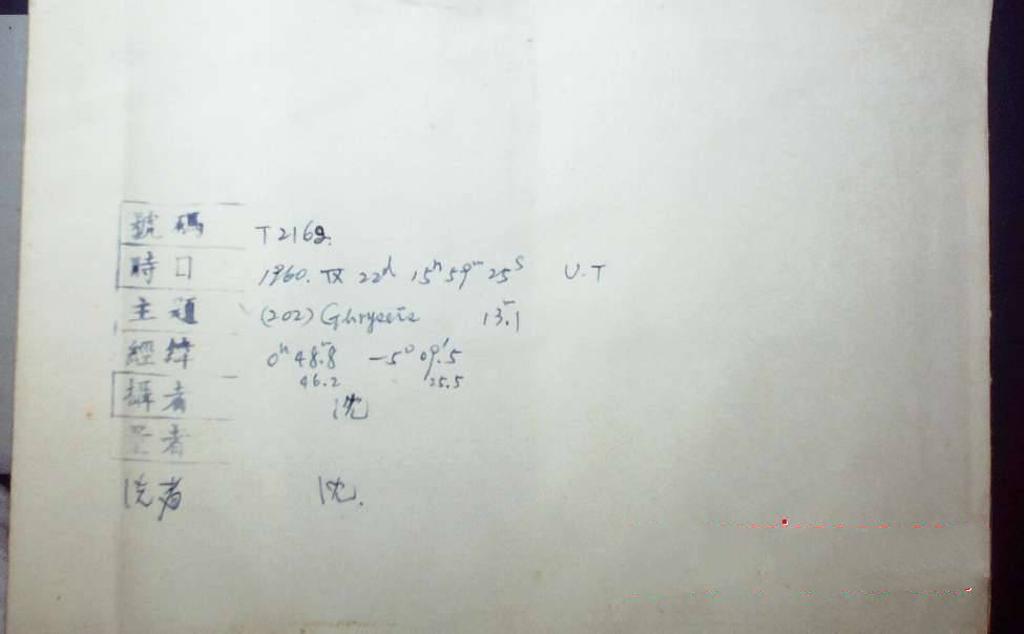 號碼 T2162.
時日 1960. IX 22d 15h 59m 25s U.T
主題 (202) Chryseis 13.1
經緯 0h 48m.8 -5° 09'.5
46.2 25.5
攝者 沈
者
洗者 沈.